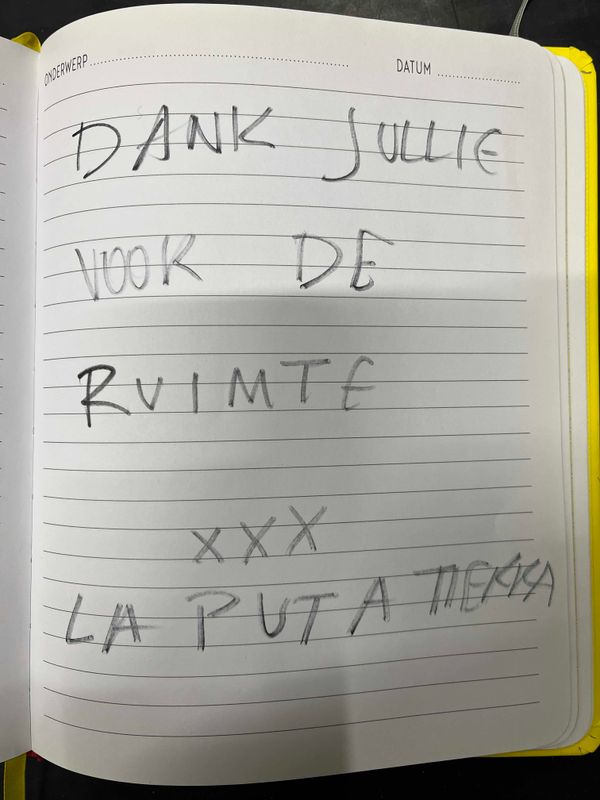 ONDERWERP DATUM
DANK JULLIE
VOOR DE
RUIMTE
XXX
LA PUTA